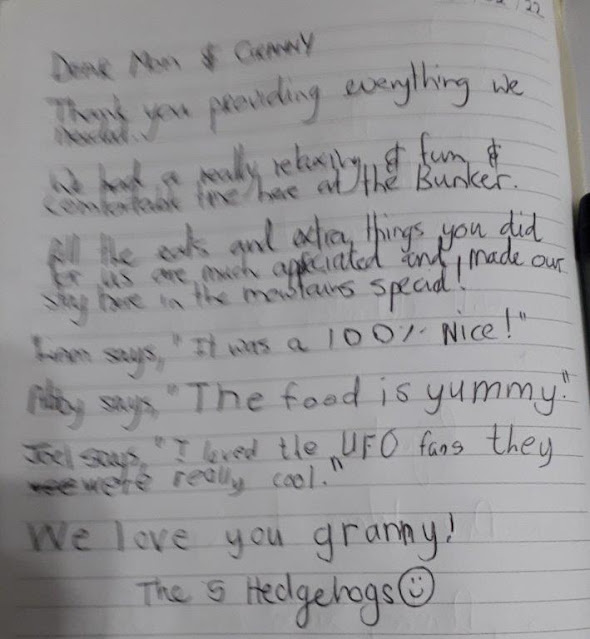 /22
Dear Mom & GRANNY
Thank you providing everything we
needed.
We had a really relaxing & fun &
comfortable time here at the Bunker.
All the eats and extra things you did
for us are much appreciated and made our
stay here in the mountains special!
says, "It was a 100% Nice!"
says, "The food is yummy."
Joel says, "I loved the UFO fans they
were really cool."
We love you granny!
The 5 Hedgehogs